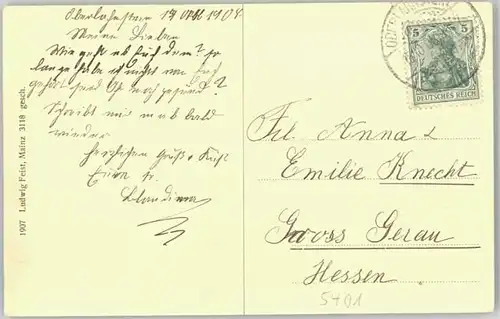 Oberlahnstein 14 1908
Meine Lieben
Wie geht es Euch denn? so
lange habe ich nicht von Euch
gehört seid Ihr noch gesund?
Schreibt mir mal bald
wieder
herzlichen Gruß & Kuß
Eure
Blandina
1907 Ludwig Feist, Mainz 3118 gesch.
5 5
DEUTSCHES REICH
Frl Anna &
Emilie Knecht
Gross Gerau
Hessen
5401